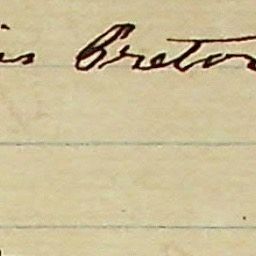 is Breton